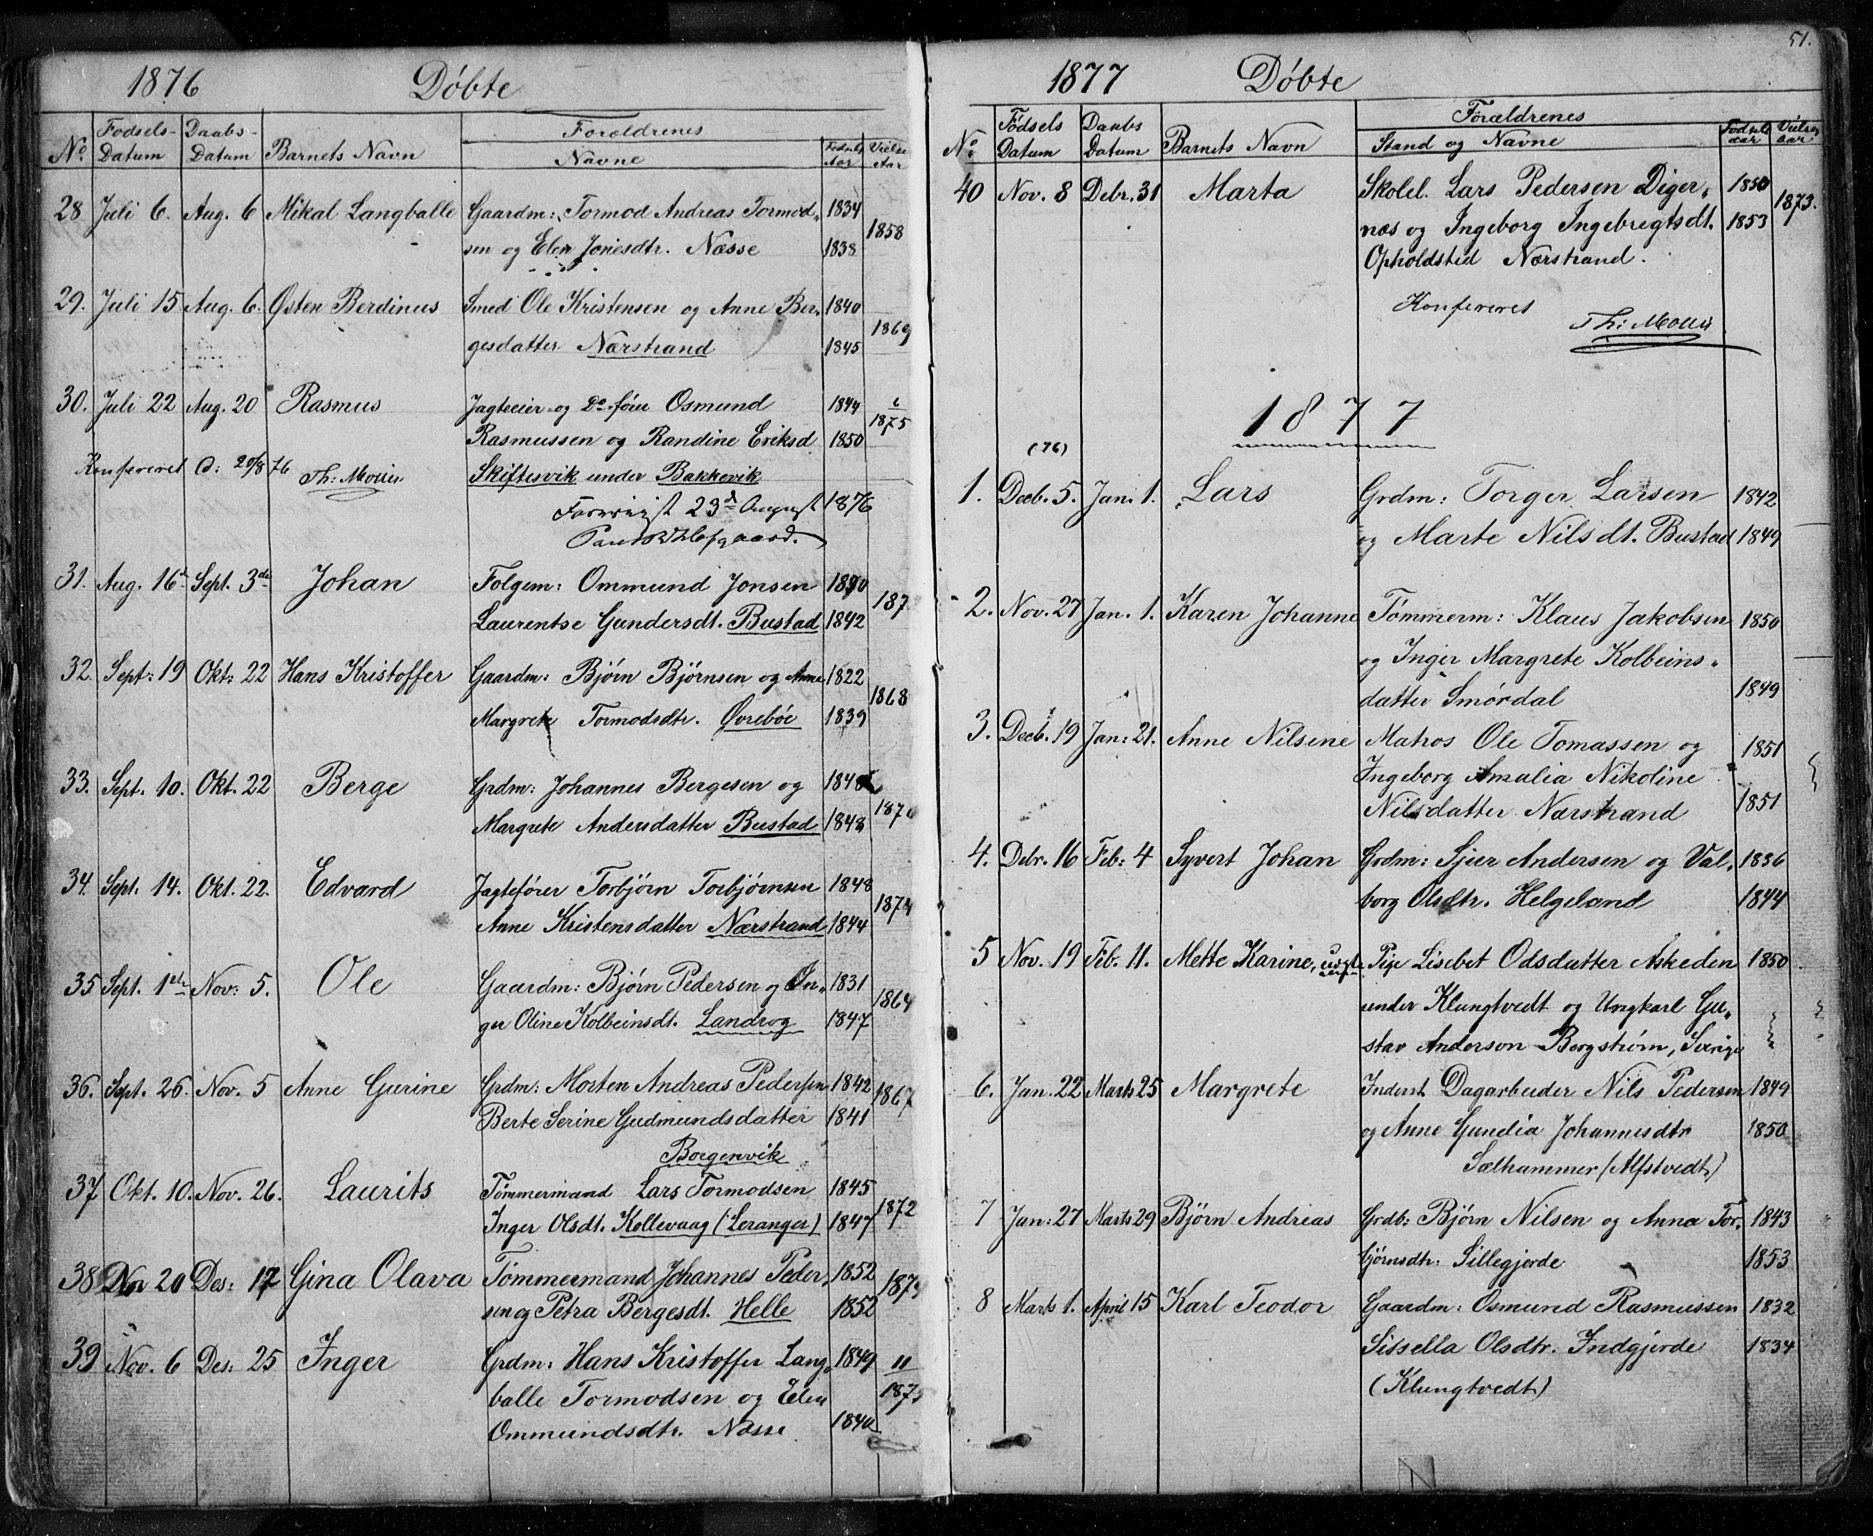 1876 Døbte
No. Fødsels-Datum Daabs-Datum Barnets Navn Forældrenes Navne Fødsels Aar Vielse Aar
28. Juli 6. Aug. 6 Mikal Langballe Gaardm: Tormod Andreas Tormod- 1834
sen og Elen Jonesdtr. Næsse 1838 1858
29. Juli 15 Aug. 6. Østen Berdinus Smed Ole Kristensen og Anne Ber- 1840
gesdatter Nærstrand 1845 1869
30. Juli 22 Aug. 20 Rasmus Jagteeier og Do-fører Osmund 1844
Rasmussen og Randine Eriksd 1850 1875
Konfereret d: 20/8 76 Th: Møller Skiftesvik under Bakkevik
Forevist 23d August 1876
31. Aug. 16d Sept. 3die Johan Folgem: Ommund Jonsen
Laurentse Gundersdt. Bustad 1842 187
32. Sept: 19 Okt: 22 Hans Kristoffer Gaardm: Bjørn Bjørnsen og Anne 1822
Margrete Tormodsdtr. Øvrebøe 1839 1868
33. Sept. 10. Okt. 22 Berge Grdm: Johannes Bergesen og 1848
Margrete Andersdatter Bustad 1848
34. Sept. 14. Okt. 22. Edvard Jagtefører Torbjørn Torbjørnsen 1848
Anne Kristensdatter Nærstrand 1844 1874
35 Sept. 1ste Nov: 5. Ole Gaardm: Bjørn Pedersen og In- 1831
ger Oline Kolbeinsdt. Landrog 1847 1864
36. Sept. 26. Nov. 5 Anne Gurine Grdm: Morten Andreas Pedersen 1842
Berte Serine Gudmundsdatter 1841 1867
Borgenvik
37 Okt. 10. Nov. 26. Laurits Tømmermand Lars Tormodsen 1845
Inger Olsdt. Kollevaag (Leranger) 1847 1872
38 Nov 20 Des: 17 Gina Olava Tømmermand Johannes Peder- 1852
sen og Petra Bergesdt. Helle 1852 1874
39 Nov. 6 Des: 25 Inger Grdm: Hans Kristoffer Lang- 1849
balle Tormodsen og Elen 11/1875
Ommundsdtr. Næsse. 1840
51.
1877 Døbte
No. Fødsels Datum Daabs Datum Barnets Navn Forældrenes Stand og Navne Fødsels aar Vielses aar
40 Nov. 8 Debr. 31 Marta Skolel. Lars Pedersen Diger- 1850
næs og Ingeborg Ingebregtsdt. 1853 1873.
Opholdsted Nærstrand.
Konfereret
Th: Møller
1877
(76)
1. Decb. 5. Jan. 1. Lars Grdm: Torger Larsen 1842
og Marte Nilsdt. Bustad 1849
2. Nov. 27 Jan. 1. Karen Johanne Tømmerm: Klaus Jakobsen 1850
og Inger Margrete Kolbeins-
datter Smørdal 1849
3. Decb. 19 Jan: 21. Anne Nilsine Matros Ole Tomassen og 1851
Ingeborg Amalia Nikoline
Nilsdatter Nærstrand 1851
4. Debr. 16 Feb: 4 Syvert Johan Grdm: Sjur Andersen og Val- 1836
borg Olsdtr. Helgeland 1844
5 Nov. 19 Feb. 11. Mette Karine, uægte Pige Lisebet Odsdatter Askeden 1850
under Klungtvedt og Ungkarl Gu-
stav Anderson Borgstrøm, Sverige
6. Jan. 22 Marts 25 Margrete Inderst Dagarbeider Nils Pedersen 1849
og Anne Gundia Johannesdtr 1850
Sælhammer (Alfstvedt)
7 Jan: 27 Marts 29 Bjørn Andreas Grdb: Bjørn Nilsen og Anna Tor- 1843
bjørnsdtr: Sillegjorde 1853
8 Marts 1. April 15 Karl Teodor Gaardm: Osmund Rasmussen 1832
Sitsella Olsdtr. Indgjerde 1834
(Klungtvedt)